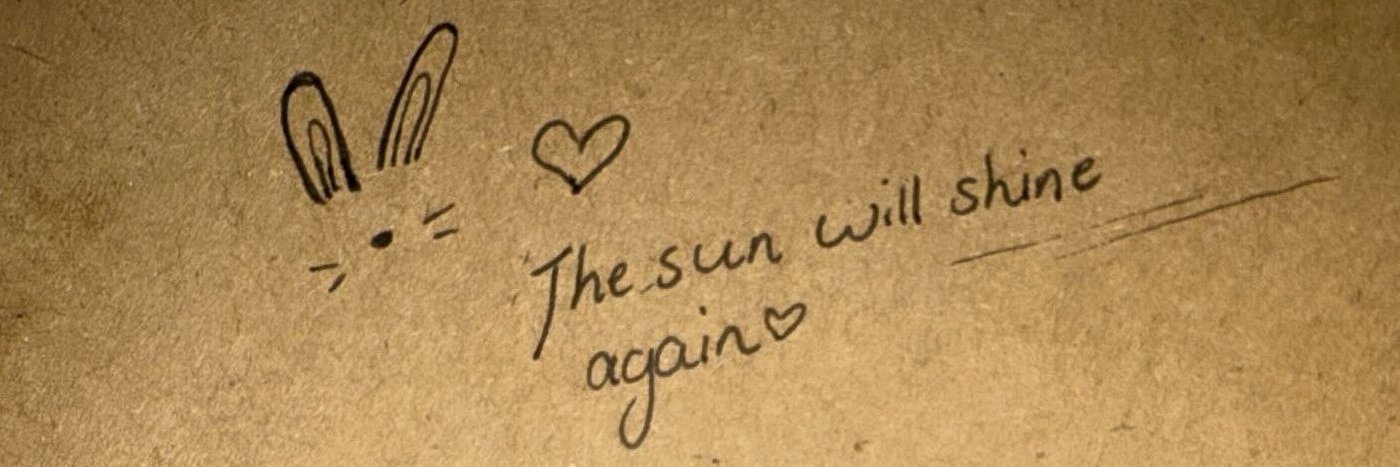 The sun will shine
again♡